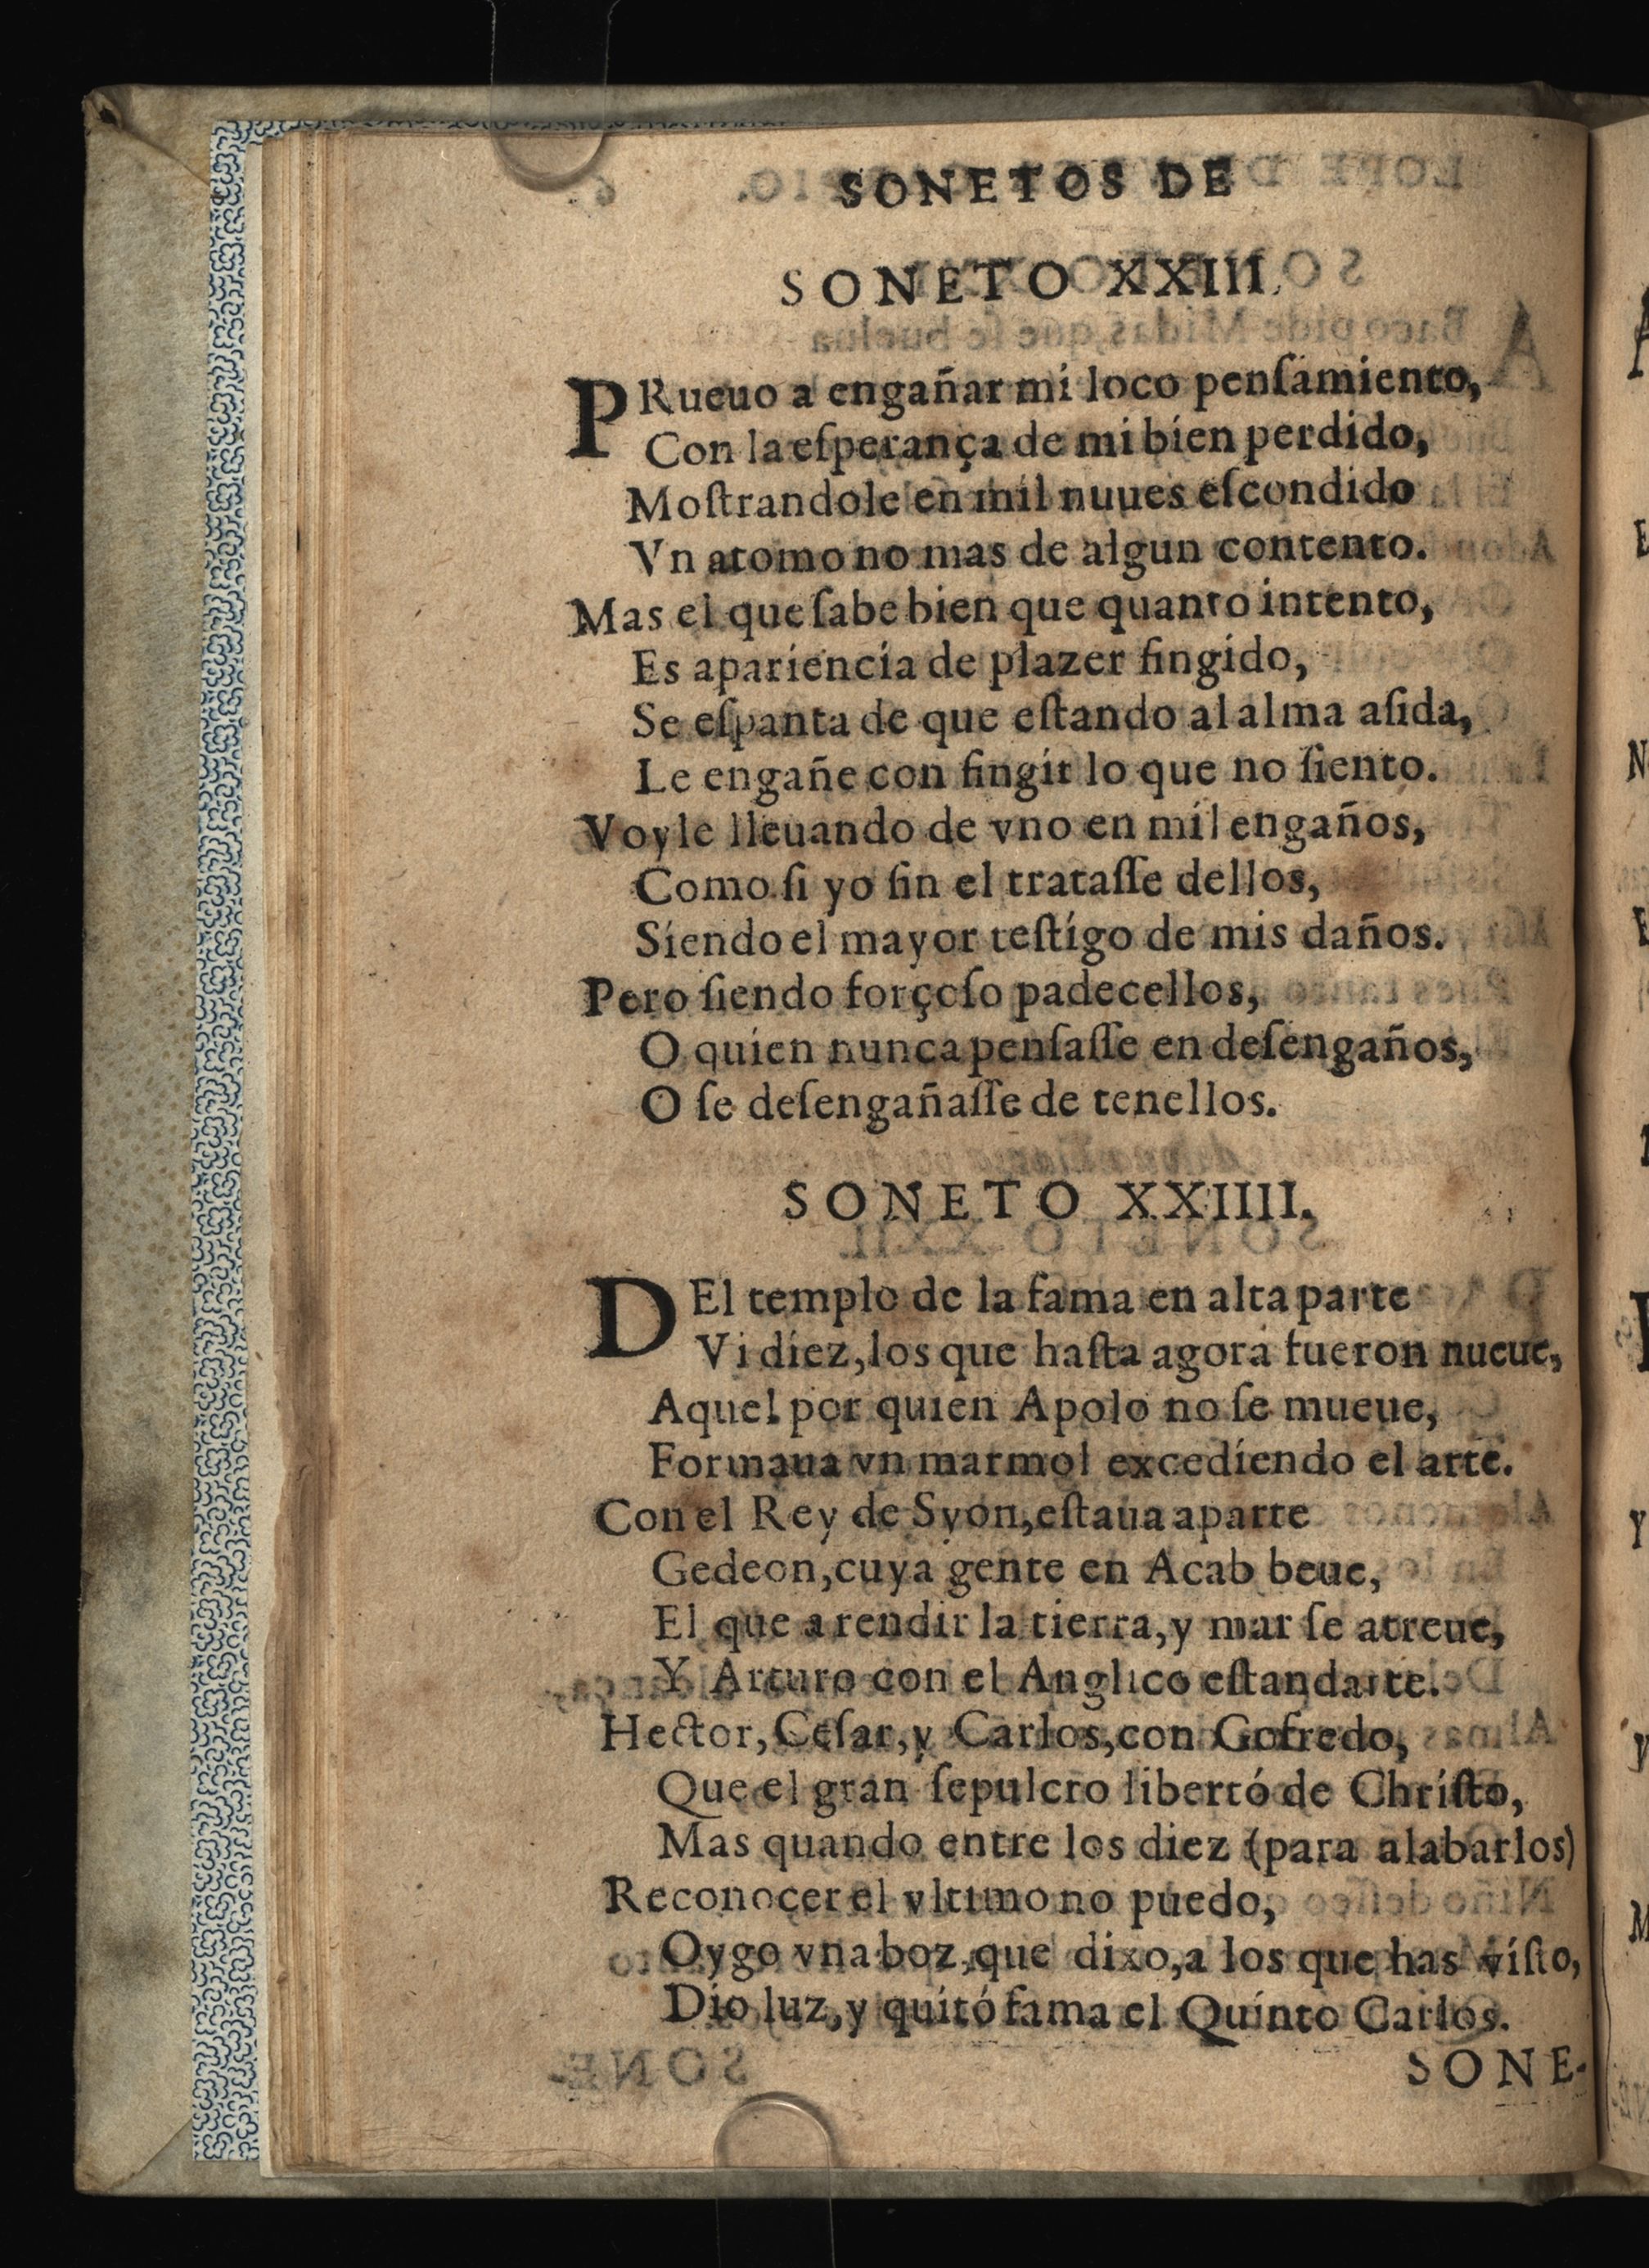 SONETOS DE
SONETO XXIII.
PRueuo a engañar mi loco penſamiento,
Con la eſperança de mi bien perdido,
Moſtrandole en mil nuues eſcondido
Vn atomo no mas de algun contento.
Mas el que ſabe bien que quanto intento,
Es apariencia de plazer fingido,
Se eſpanta de que eſtando al alma aſida,
Le engañe con fingir lo que no ſiento.
Voyle lleuando de vno en mil engaños,
Como ſi yo ſin el trataſſe dellos,
Siendo el mayor teſtigo de mis daños.
Pero ſiendo forçoſo padecellos,
O quien nunca penſaſſe en deſengaños,
O ſe deſengañaſſe de tenellos.
SONETO XXIIII.
DEl templo de la fama en alta parte
Vi diez, los que haſta agora fueron nueue,
Aquel por quien Apolo no ſe mueue,
Formaua vn marmol excediendo el arte.
Con el Rey de Syon, eſtaua aparte
Gedeon, cuya gente en Acab beue,
El que a rendir la tierra, y mar ſe atreue,
Y Arturo con el Anglico eſtandarte.
Hector, Ceſar, y Carlos, con Gofredo,
Que el gran ſepulcro libertó de Chriſto,
Mas quando entre los diez (para alabarlos)
Reconocer el vltimo no puedo,
Oygo vna boz, que dixo, a los que has viſto,
Dio luz, y quitó fama el Quinto Carlos.
SONE-